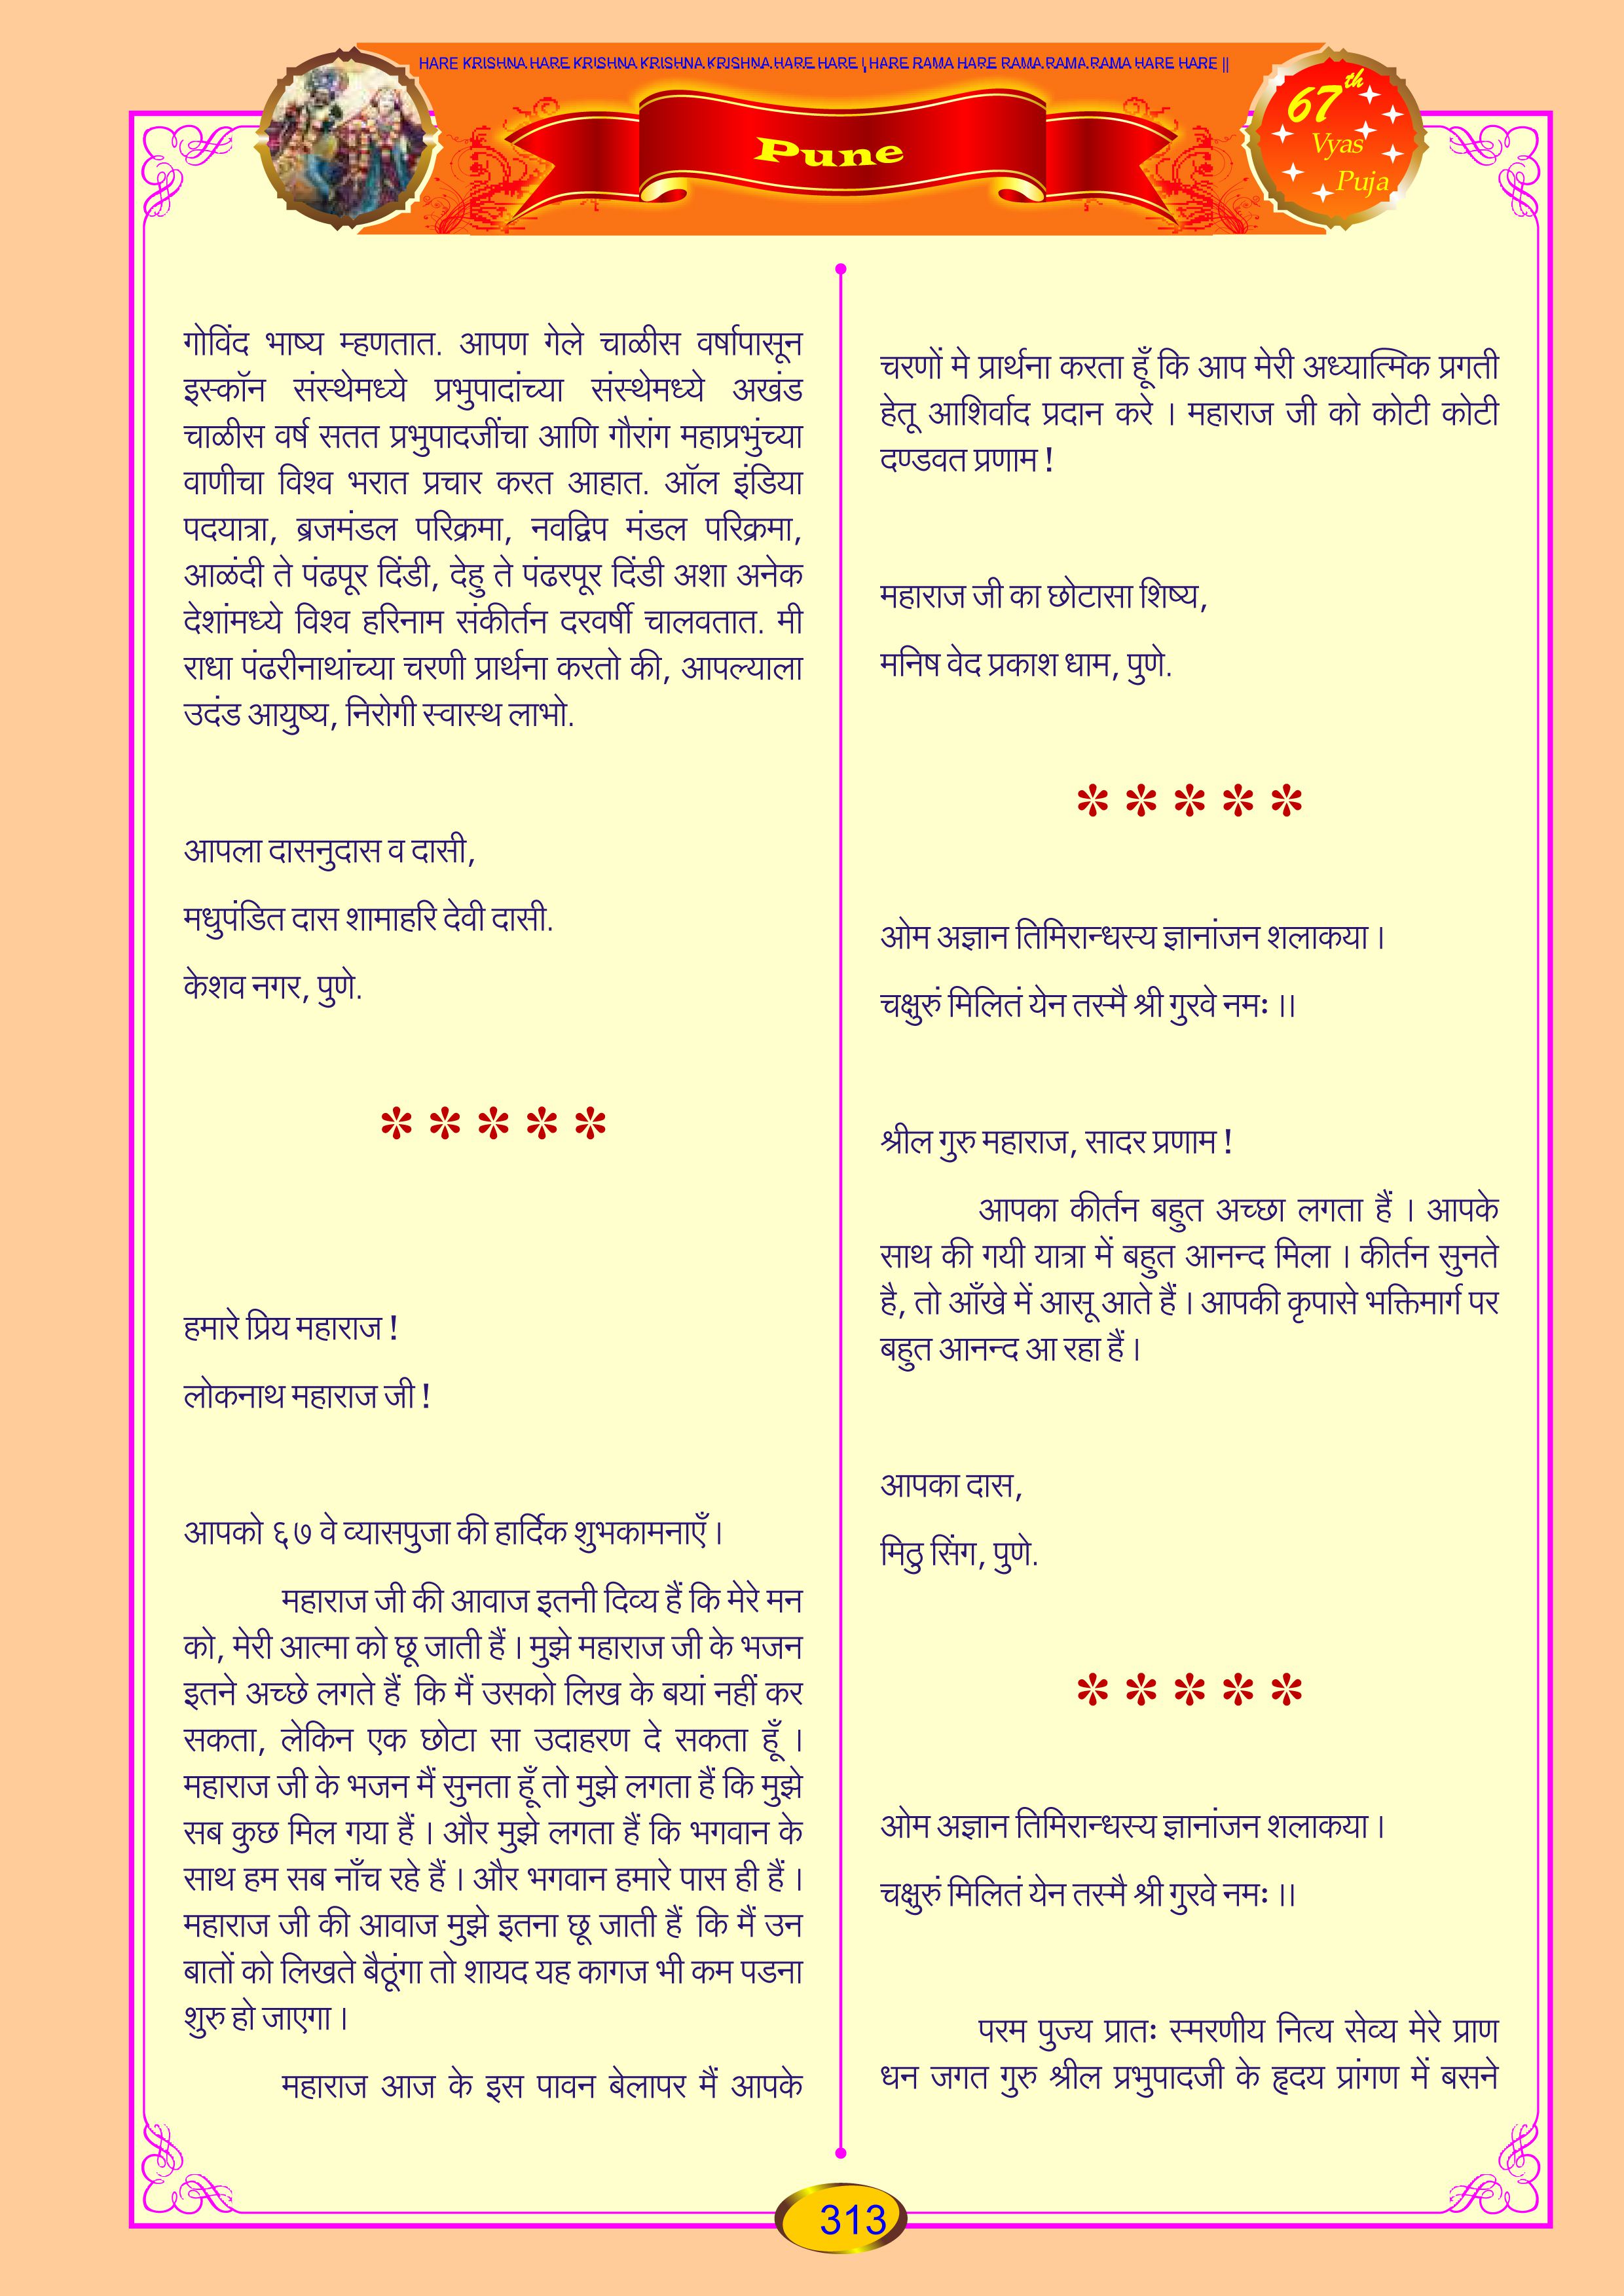 HARE KRISHNA HARE KRISHNA KRISHNA KRISHNA HARE HARE | HARE RAMA HARE RAMA RAMA RAMA HARE HARE ||
Pune
67th
Vyas
Puja
गोविंद भाष्य म्हणतात. आपण गेले चाळीस वर्षापासून
इस्कॉन संस्थेमध्ये प्रभुपादांच्या संस्थेमध्ये अखंड
चाळीस वर्ष सतत प्रभुपादजींचा आणि गौरांग महाप्रभुंच्या
वाणीचा विश्व भरात प्रचार करत आहात. ऑल इंडिया
पदयात्रा, ब्रजमंडल परिक्रमा, नवद्विप मंडल परिक्रमा,
आळंदी ते पंढपूर दिंडी, देहु ते पंढरपूर दिंडी अशा अनेक
देशांमध्ये विश्व हरिनाम संकीर्तन दरवर्षी चालवतात. मी
राधा पंढरीनाथांच्या चरणी प्रार्थना करतो की, आपल्याला
उदंड आयुष्य, निरोगी स्वास्थ लाभो.
आपला दासनुदास व दासी,
मधुपंडित दास शामाहरि देवी दासी.
केशव नगर, पुणे.
* * * * *
हमारे प्रिय महाराज !
लोकनाथ महाराज जी !
आपको ६७ वे व्यासपुजा की हार्दिक शुभकामनाएँ ।
महाराज जी की आवाज इतनी दिव्य हैं कि मेरे मन
को, मेरी आत्मा को छू जाती हैं । मुझे महाराज जी के भजन
इतने अच्छे लगते हैं कि मैं उसको लिख के बयां नहीं कर
सकता, लेकिन एक छोटा सा उदाहरण दे सकता हूँ ।
महाराज जी के भजन मैं सुनता हूँ तो मुझे लगता हैं कि मुझे
सब कुछ मिल गया हैं । और मुझे लगता हैं कि भगवान के
साथ हम सब नाँच रहे हैं । और भगवान हमारे पास ही हैं ।
महाराज जी की आवाज मुझे इतना छू जाती हैं कि मैं उन
बातों को लिखते बैठूंगा तो शायद यह कागज भी कम पडना
शुरु हो जाएगा ।
महाराज आज के इस पावन बेलापर मैं आपके
चरणों मे प्रार्थना करता हूँ कि आप मेरी अध्यात्मिक प्रगती
हेतू आशिर्वाद प्रदान करे । महाराज जी को कोटी कोटी
दण्डवत प्रणाम !
महाराज जी का छोटासा शिष्य,
मनिष वेद प्रकाश धाम, पुणे.
* * * * *
ओम अज्ञान तिमिरान्धस्य ज्ञानांजन शलाकया ।
चक्षुरुं मिलितं येन तस्मै श्री गुरवे नमः ।।
श्रील गुरु महाराज, सादर प्रणाम !
आपका कीर्तन बहुत अच्छा लगता हैं । आपके
साथ की गयी यात्रा में बहुत आनन्द मिला । कीर्तन सुनते
है, तो आँखे में आसू आते हैं । आपकी कृपासे भक्तिमार्ग पर
बहुत आनन्द आ रहा हैं ।
आपका दास,
मिठु सिंग, पुणे.
* * * * *
ओम अज्ञान तिमिरान्धस्य ज्ञानांजन शलाकया ।
चक्षुरुं मिलितं येन तस्मै श्री गुरवे नमः ।।
परम पुज्य प्रातः स्मरणीय नित्य सेव्य मेरे प्राण
धन जगत गुरु श्रील प्रभुपादजी के हृदय प्रांगण में बसने
313